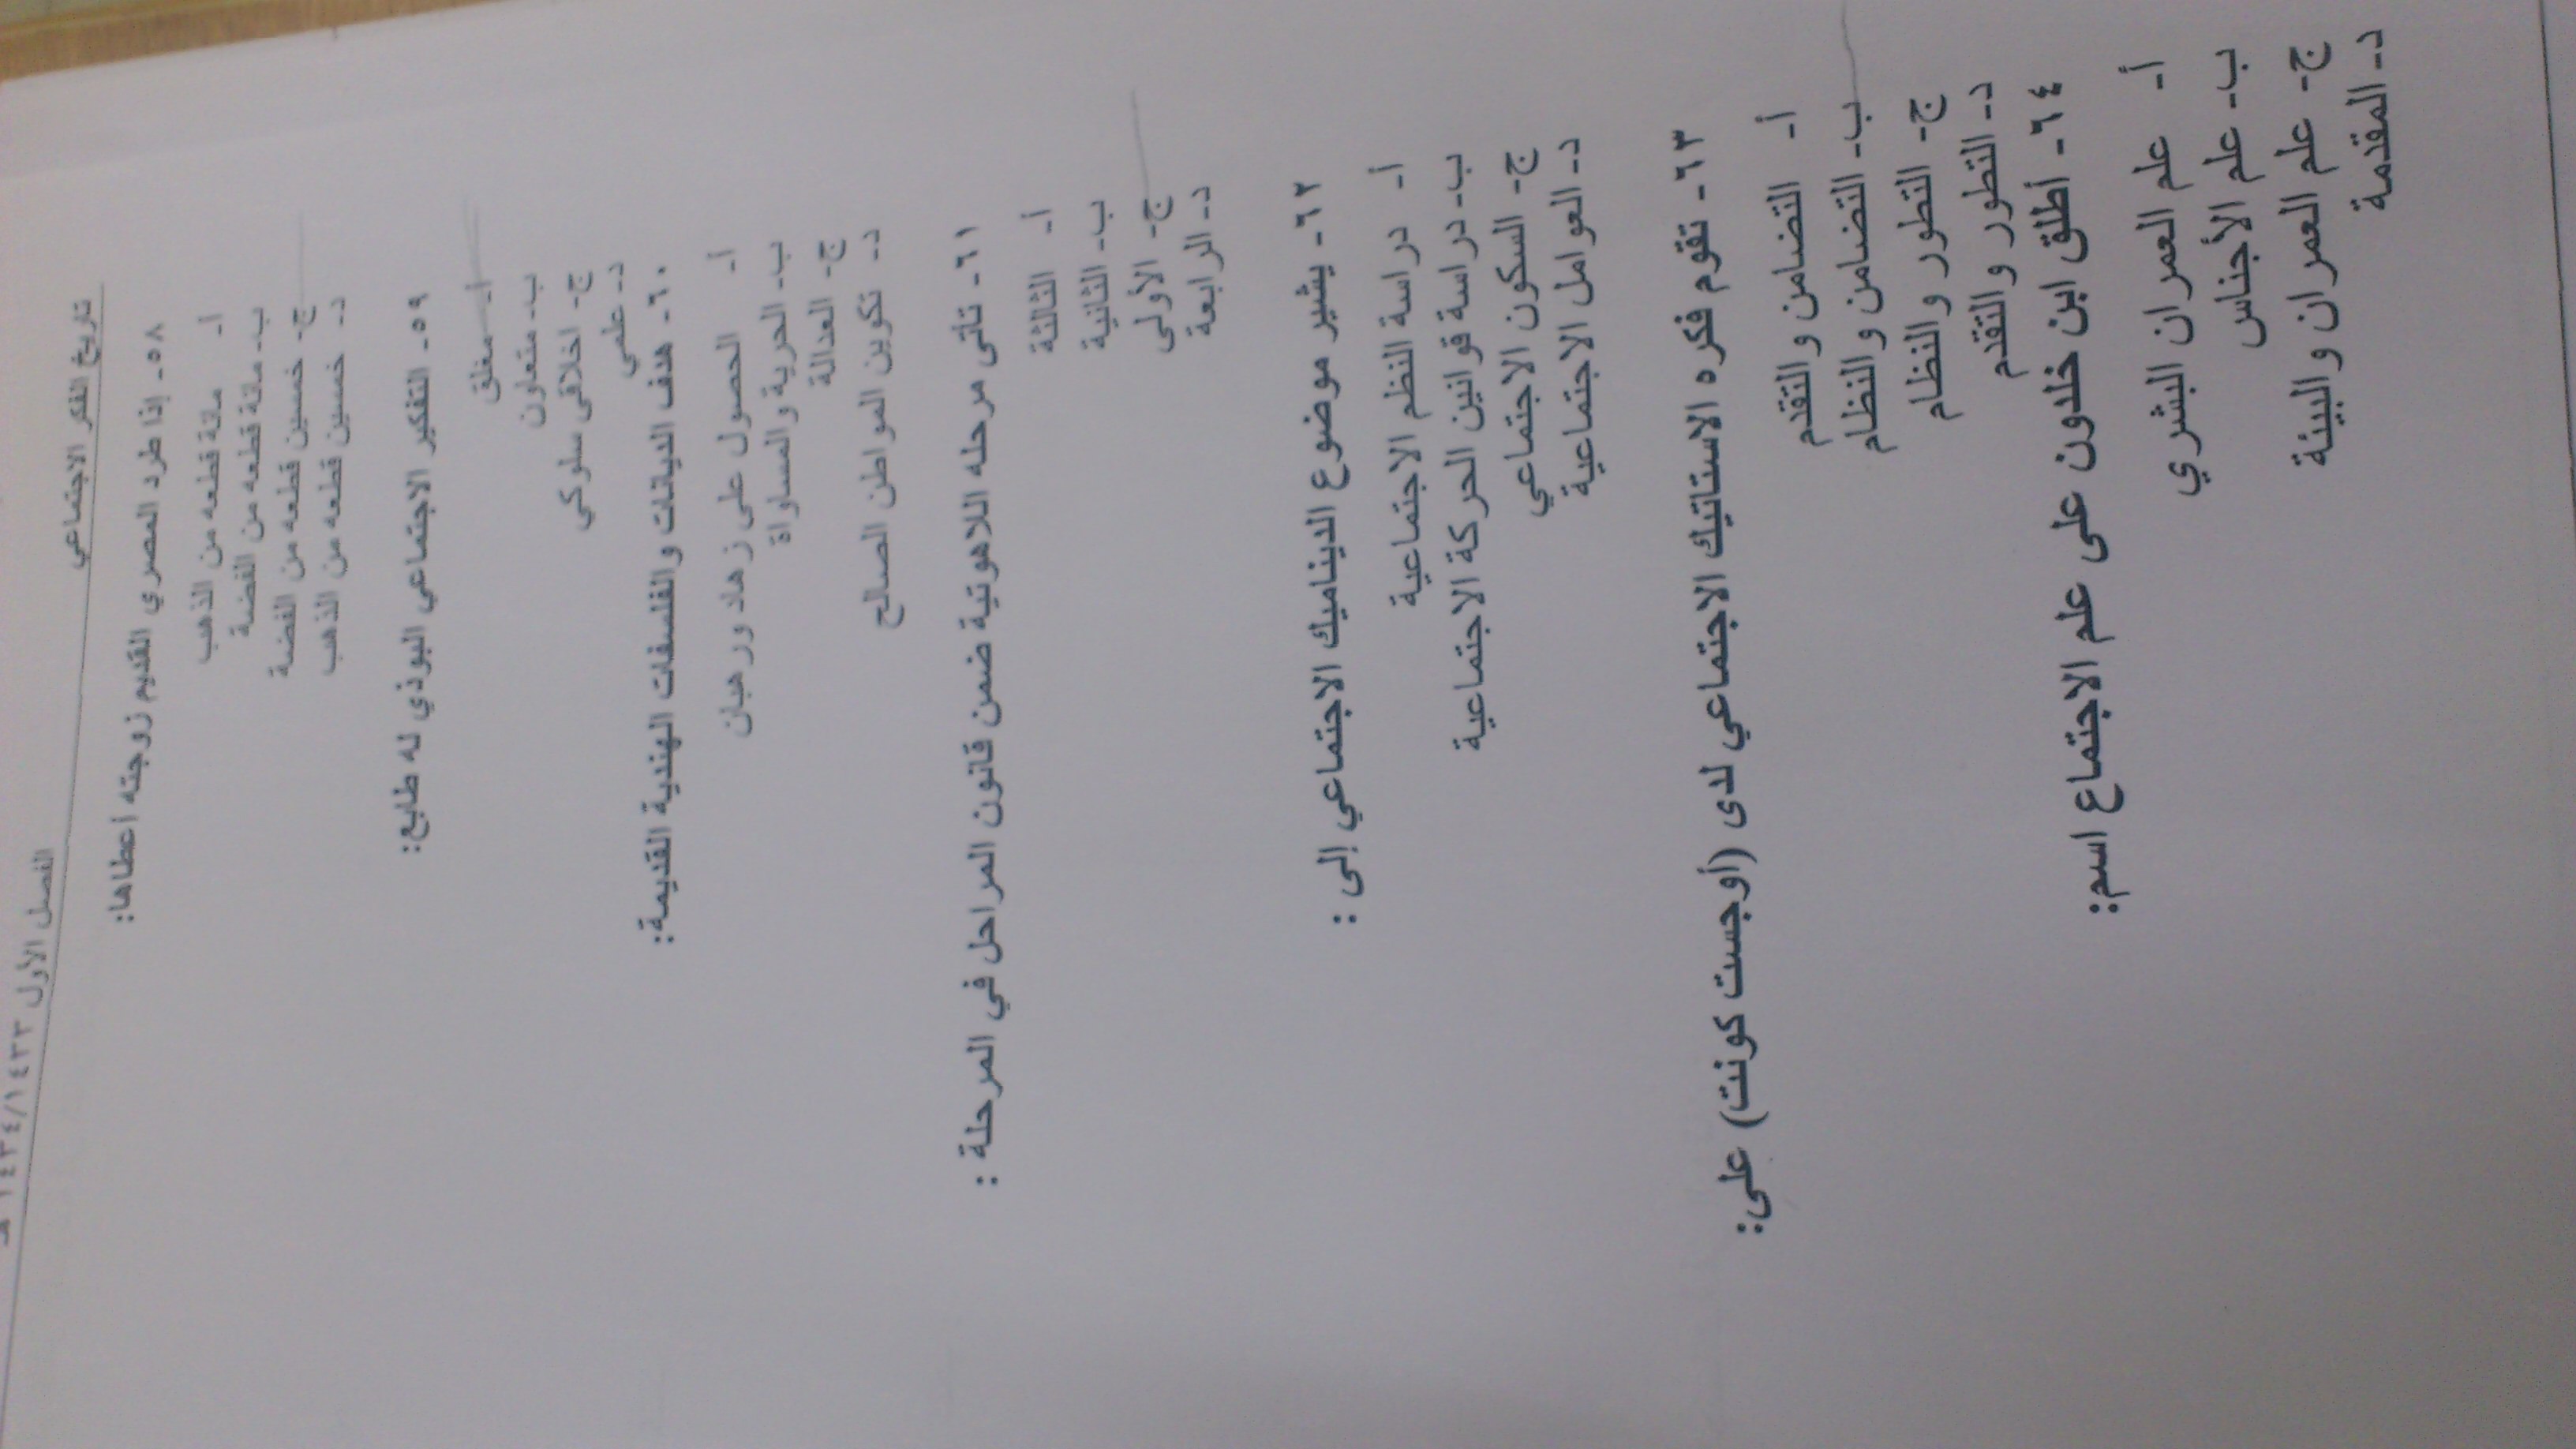 تاريخ الفكر الاجتماعي
الفصل الأول ١٤٣٣/١٤٣٤ هـ
٥٨- إذا طرد المصري القديم زوجته أعطاها:
أ- مائة قطعه من الذهب
ب- مائة قطعه من الفضة
ج- خمسين قطعه من الفضة
د- خمسين قطعه من الذهب
٥٩- التفكير الاجتماعي البوذي له طابع:
أ- مغلق
ب- متعاون
ج- اخلاقى سلوكي
د- علمي
٦٠- هدف الديانات والفلسفات الهندية القديمة:
أ- الحصول على زهاد ورهبان
ب- الحرية والمساواة
ج- العدالة
د- تكوين المواطن الصالح
٦١- تأتى مرحله اللاهوتية ضمن قانون المراحل في المرحلة :
أ- الثالثة
ب- الثانية
ج- الأولى
د- الرابعة
٦٢- يشير موضوع الديناميك الاجتماعي إلى :
أ- دراسة النظم الاجتماعية
ب- دراسة قوانين الحركة الاجتماعية
ج- السكون الاجتماعي
د- العوامل الاجتماعية
٦٣- تقوم فكره الاستاتيك الاجتماعي لدى (أوجست كونت) على:
أ- التضامن والتقدم
ب- التضامن والنظام
ج- التطور والنظام
د- التطور والتقدم
٦٤- أطلق ابن خلدون على علم الاجتماع اسم:
أ- علم العمران البشري
ب- علم الأجناس
ج- علم العمران والبيئة
د- المقدمة